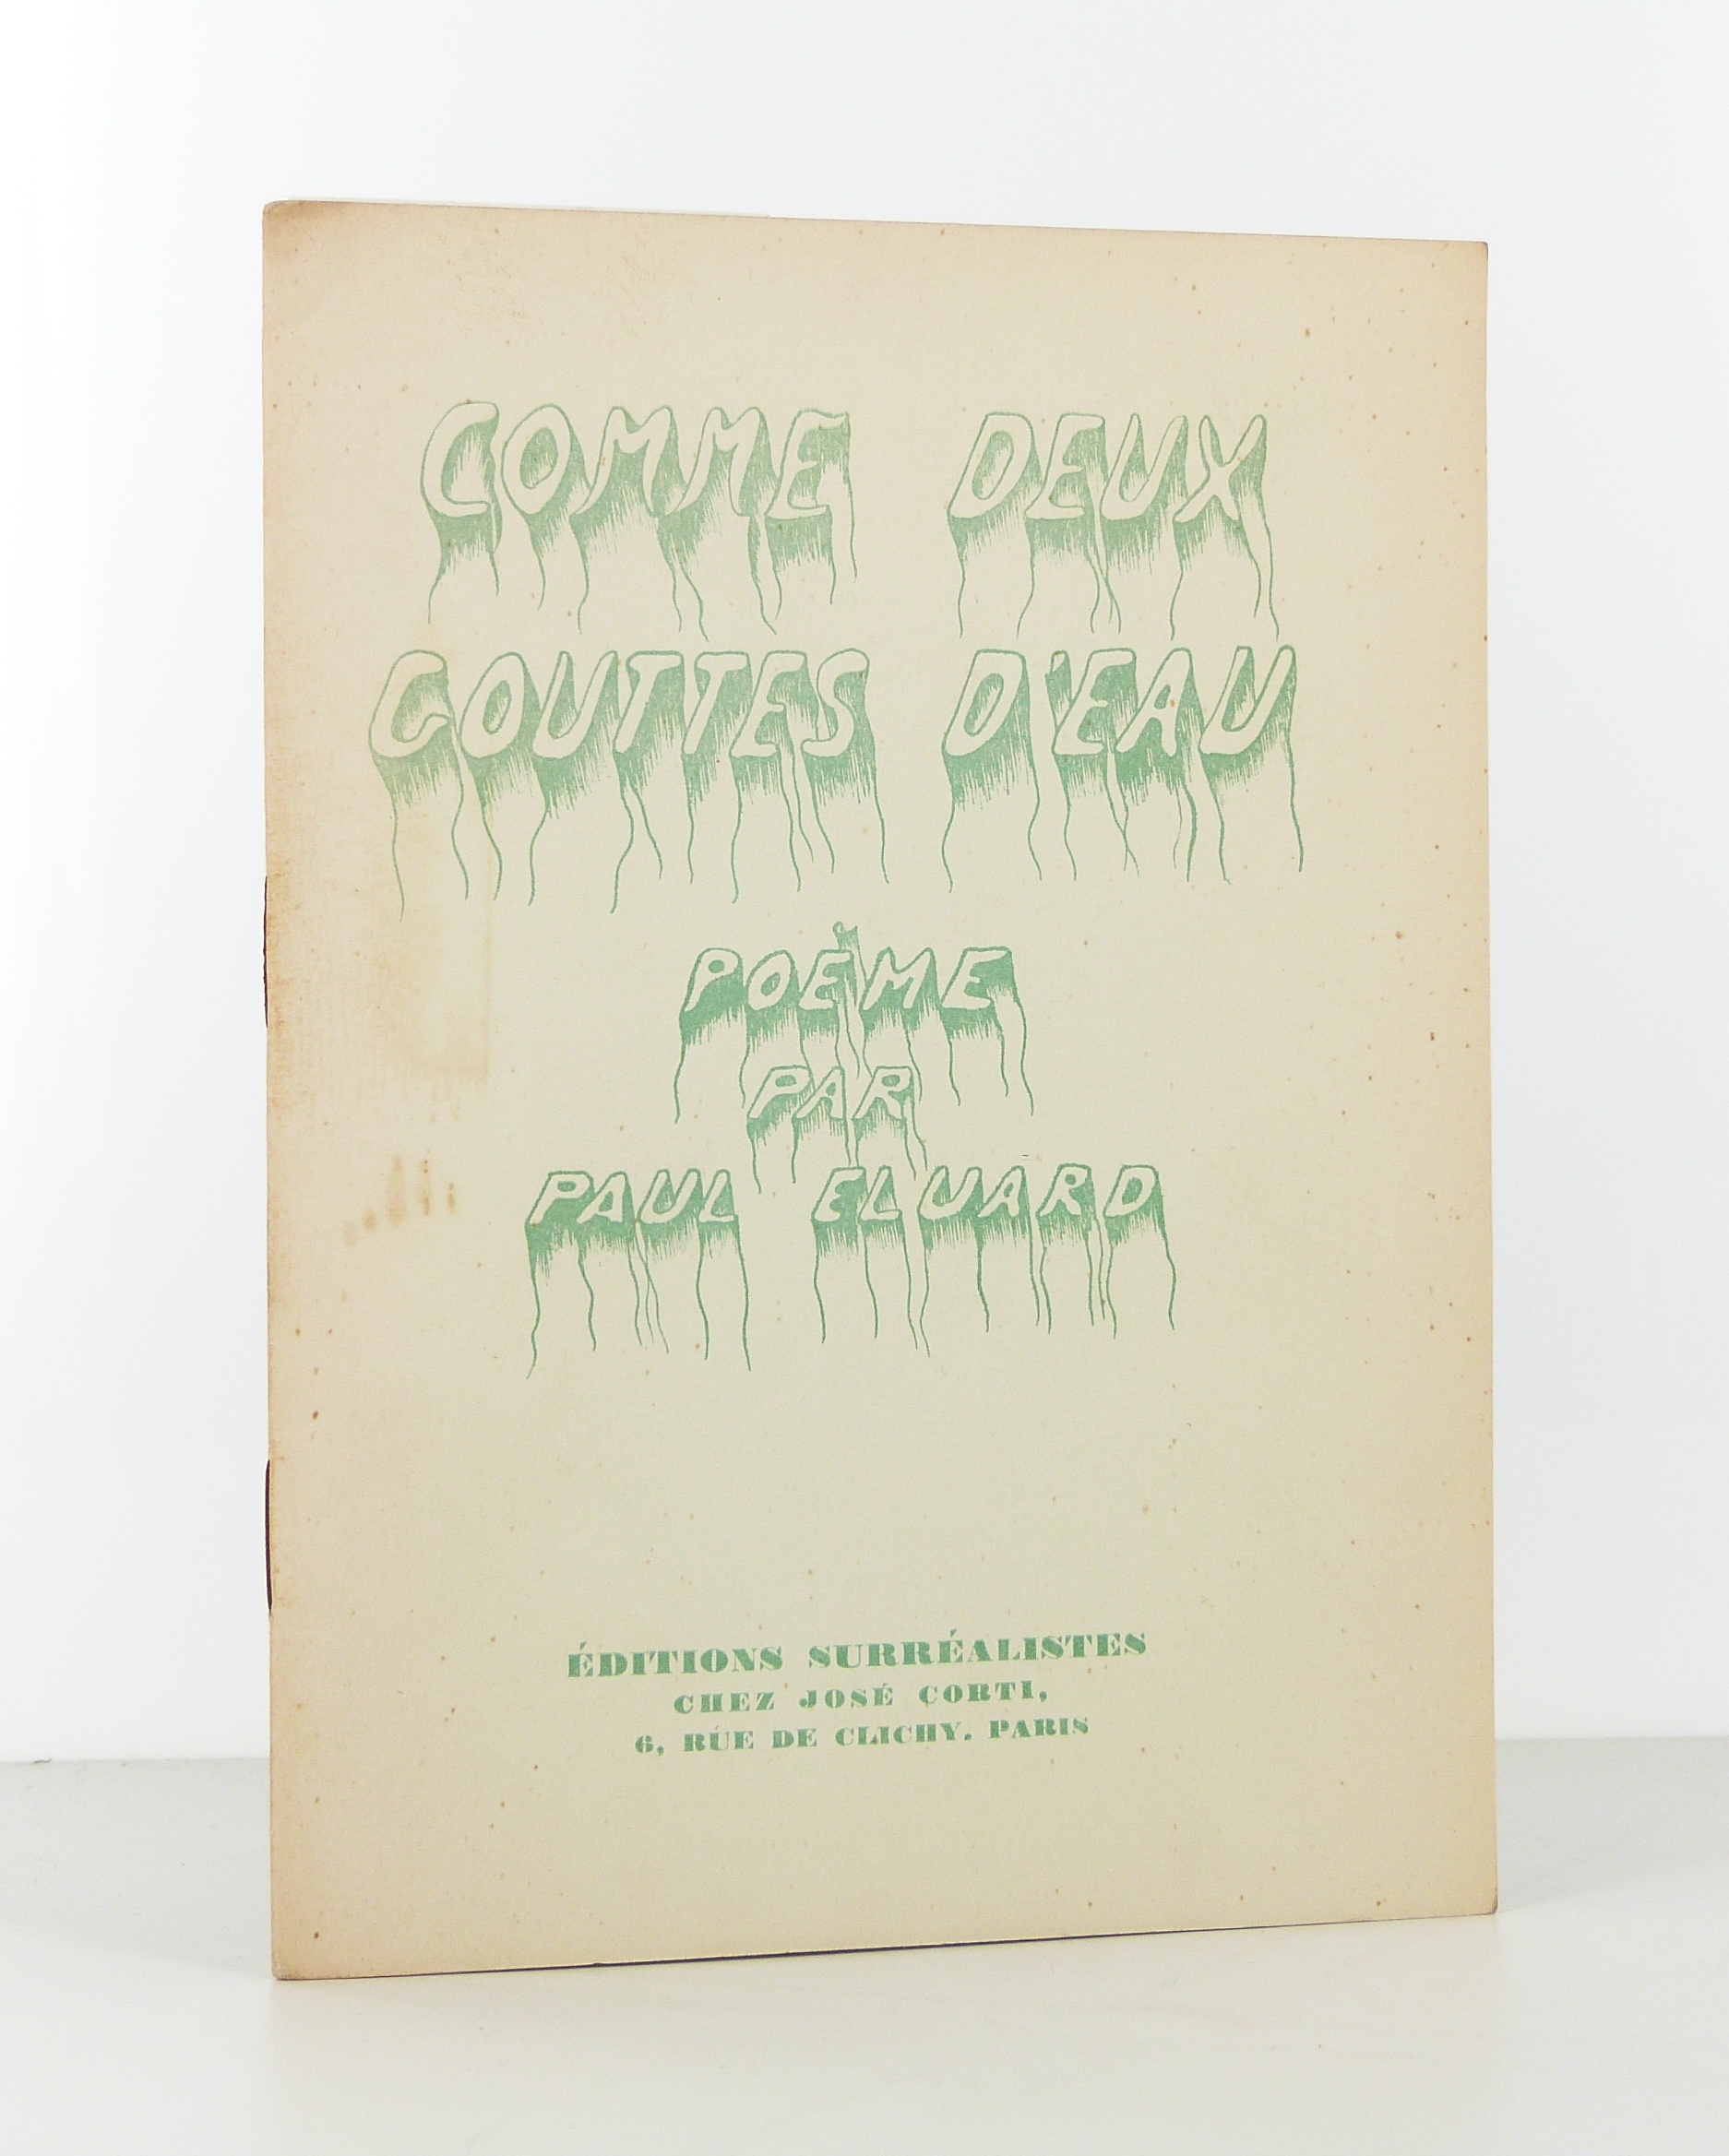 COMME DEUX
GOUTTES D'EAU
POÈME
PAR
PAUL ELUARD
ÉDITIONS SURRÉALISTES
CHEZ JOSÉ CORTI,
6, RUE DE CLICHY. PARIS